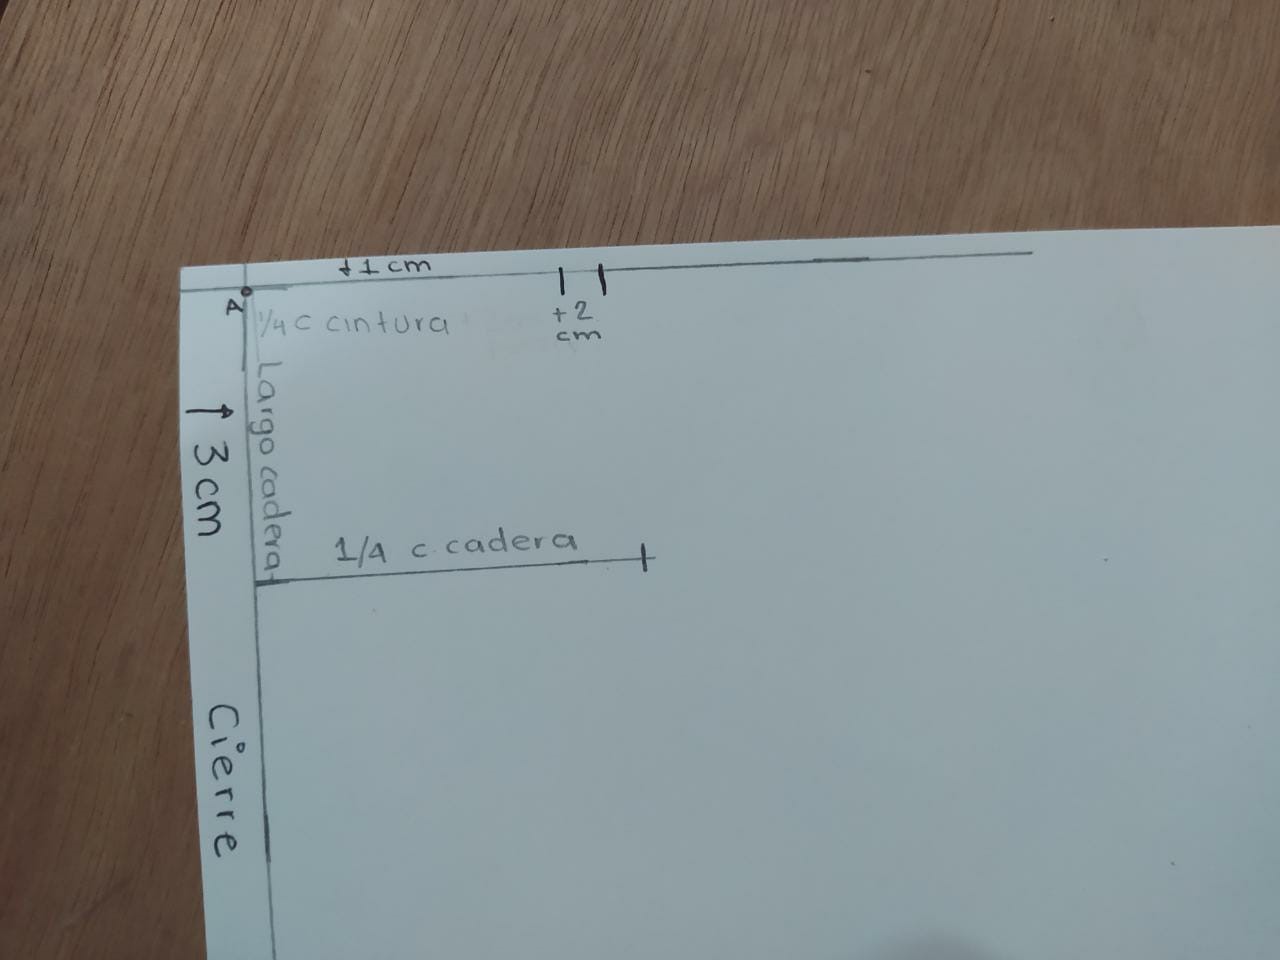 +1 cm
A
1/4 c cintura
+2
cm
Largo cadera
3cm
1/4 c. cadera
Cierre